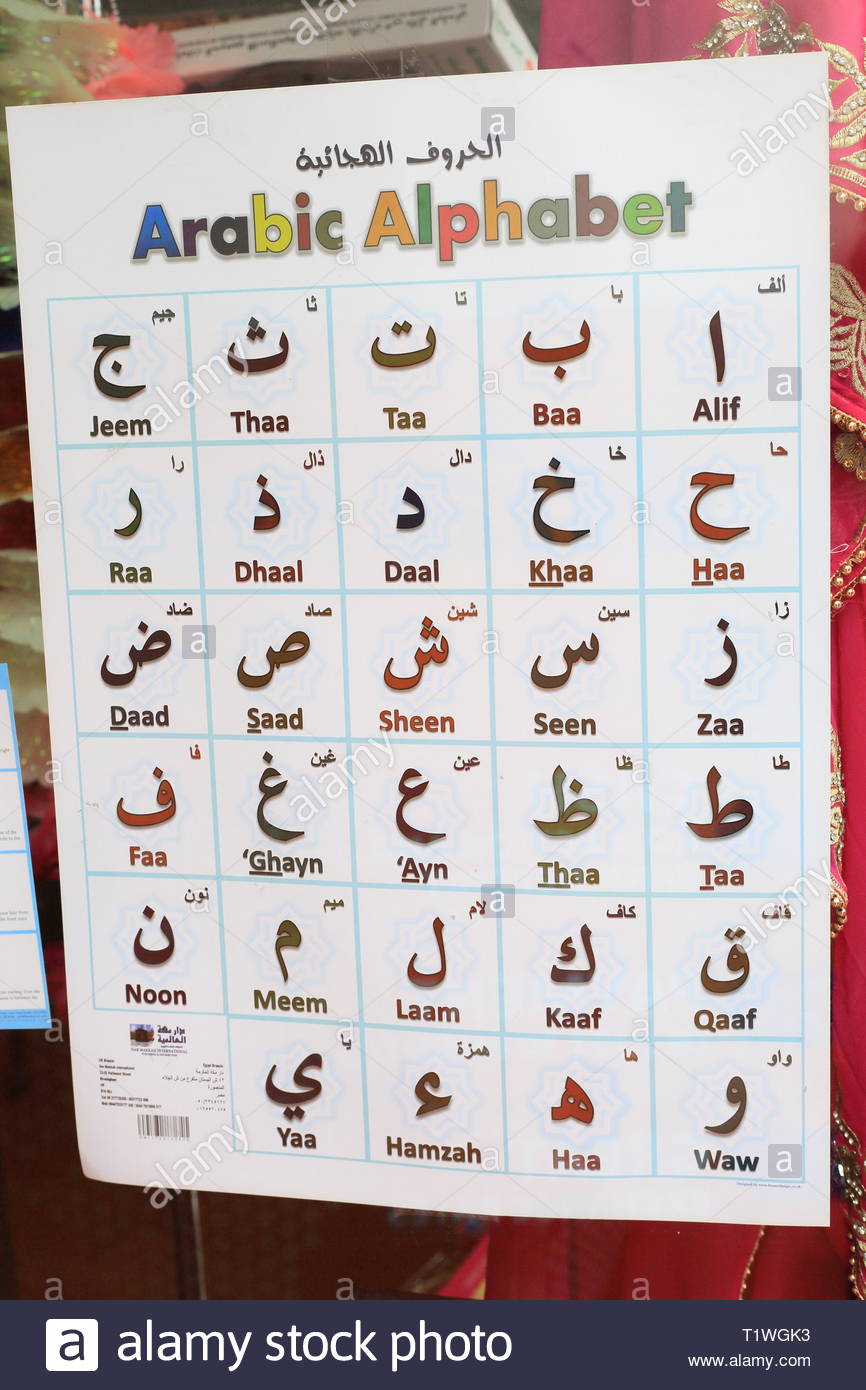 الحروف الهجائية
Arabic Alphabet
ألف با تا ثا جيم
ا ب ت ث ج
Alif Baa Taa Thaa Jeem
حا خا دال ذال را
ح خ د ذ ر
Haa Khaa Daal Dhaal Raa
زا سين شين صاد ضاد
ز س ش ص ض
Zaa Seen Sheen Saad Daad
طا ظا عين غين فا
ط ظ ع غ ف
Taa Thaa ‘Ayn ‘Ghayn Faa
قاف كاف لام ميم نون
ق ك ل م ن
Qaaf Kaaf Laam Meem Noon
واو ها همزة يا
و ه ء ي
Waw Haa Hamzah Yaa
دار مكة
العالمية
DAR MAKKAH INTERNATIONAL
alamy
a
a alamy stock photo
T1WGK3
www.alamy.com